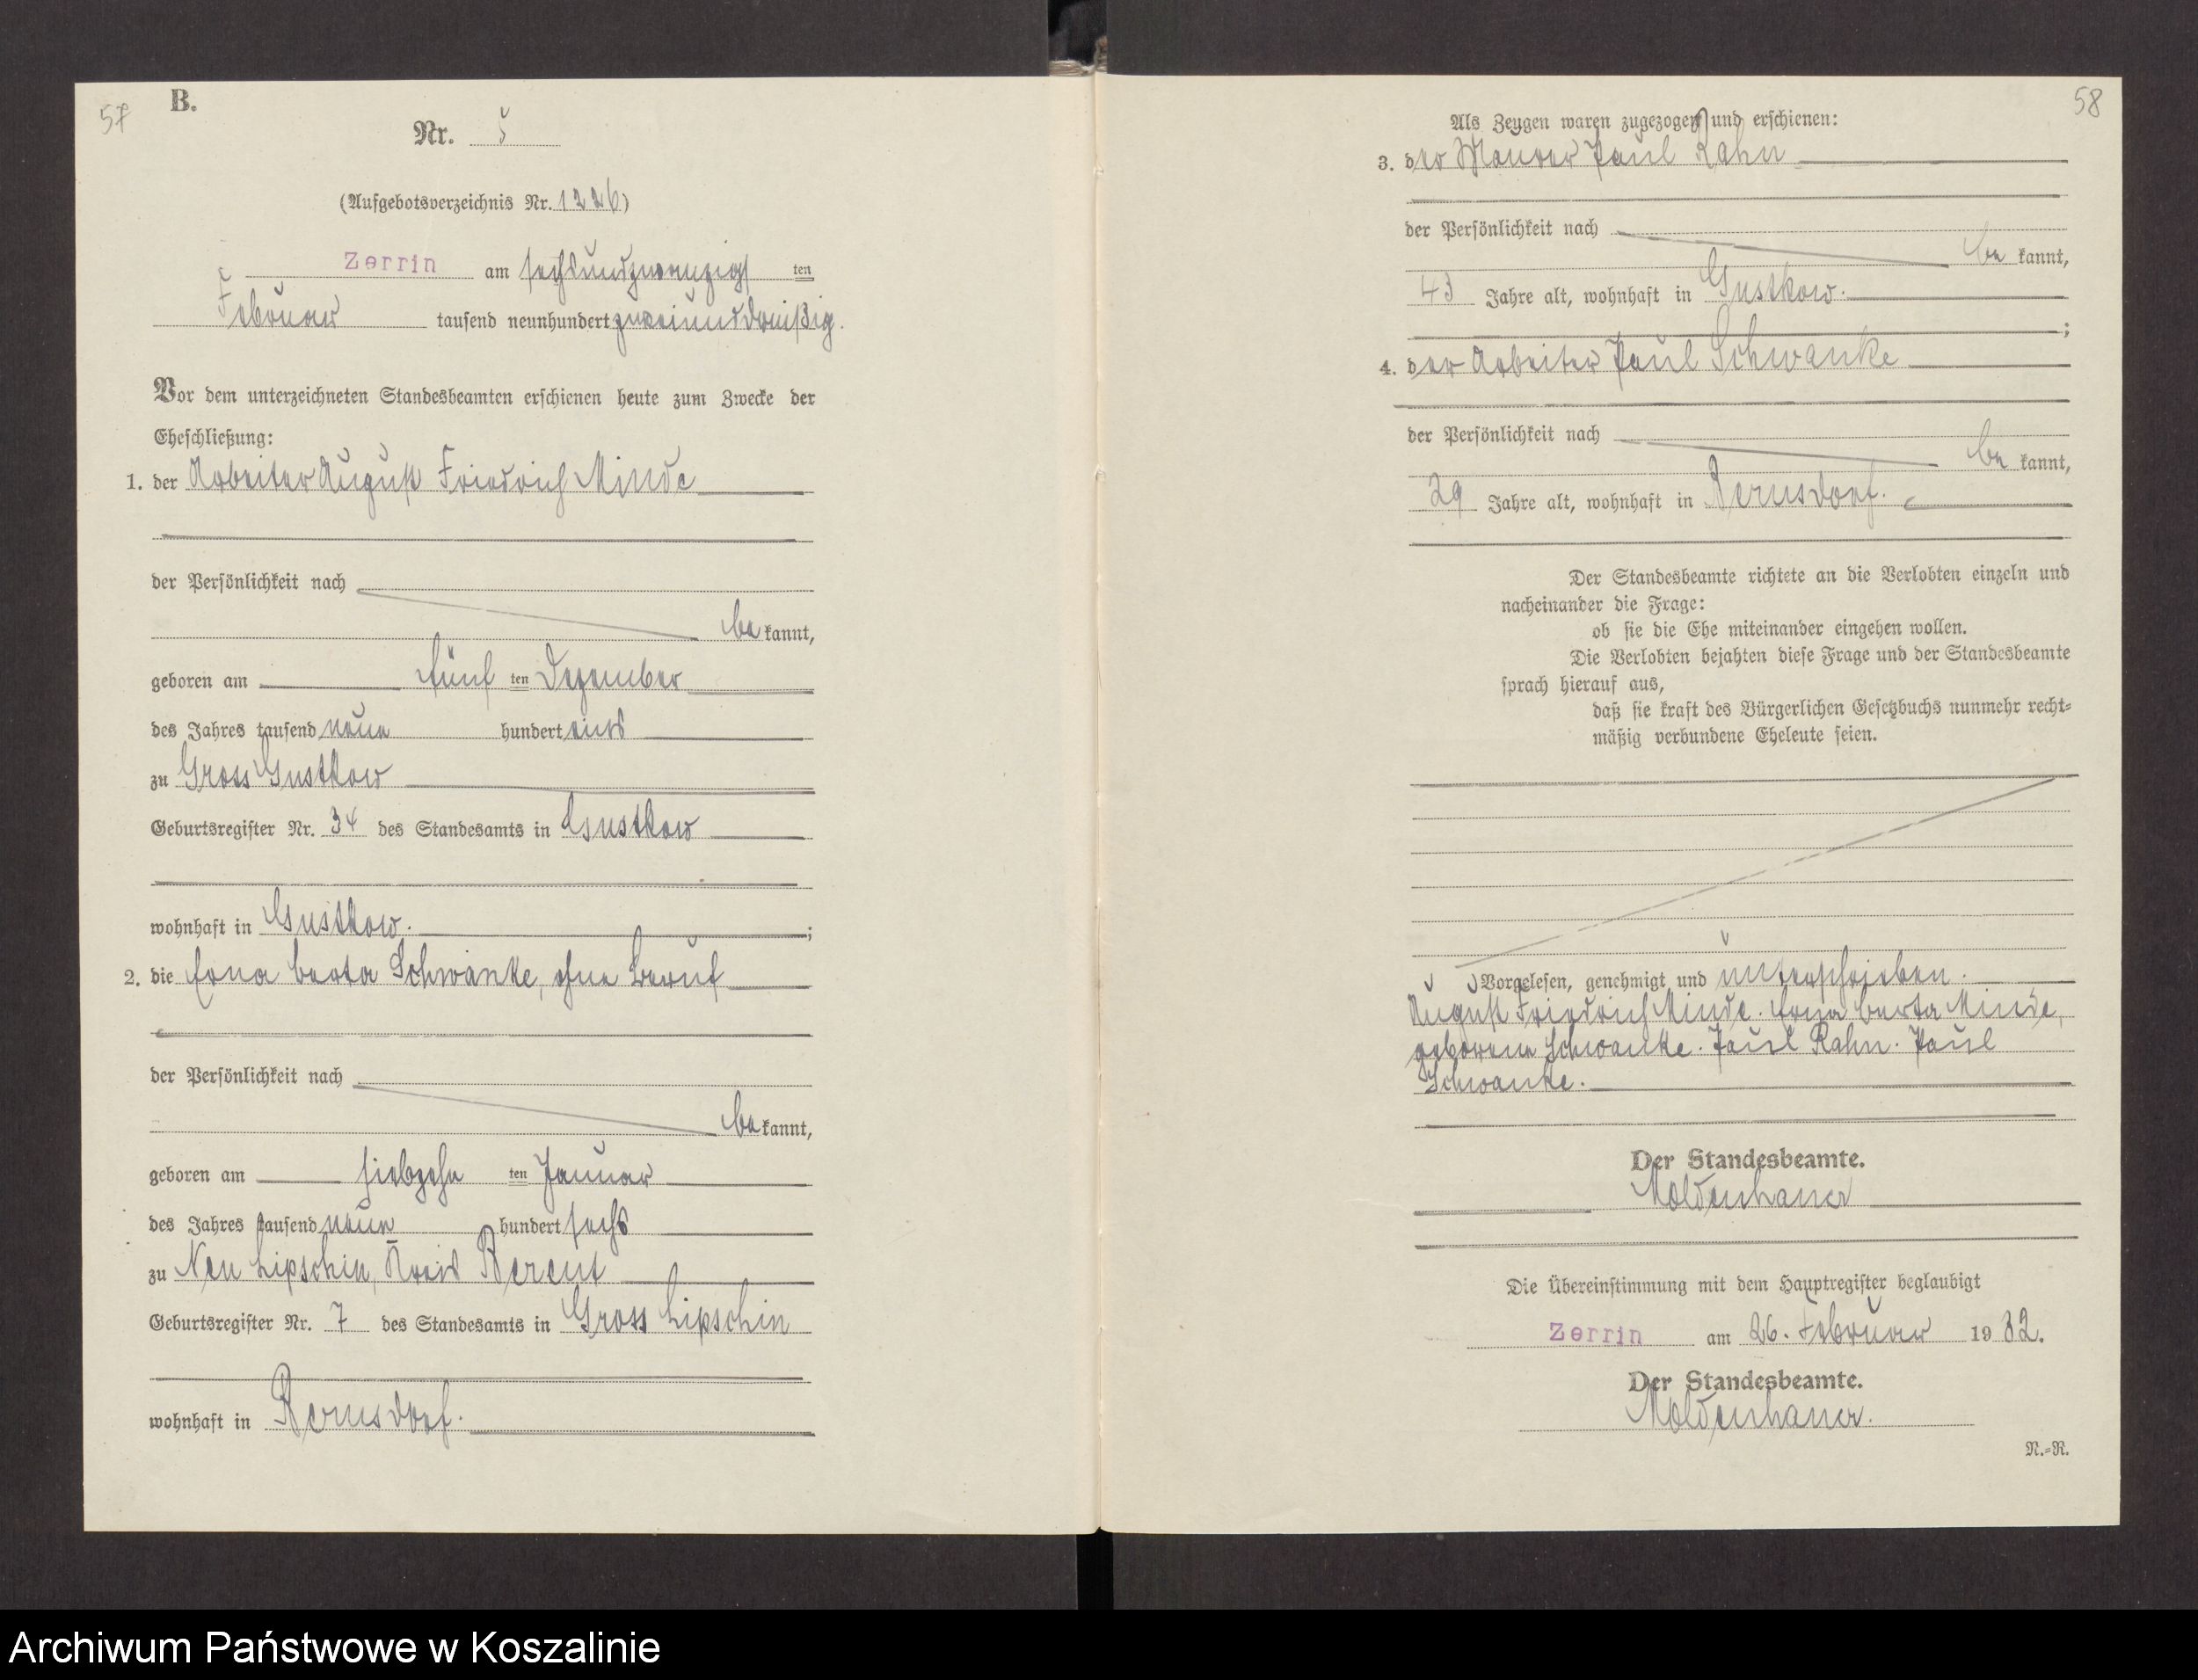 57
B.
Nr. 5
(Aufgebotsverzeichnis Nr. 1226)
Zerrin am sechsundzwanzigs ten
Februar tausend neunhundert zweiunddreißig.
Vor dem unterzeichneten Standesbeamten erschienen heute zum Zwecke der
Eheschließung:
1. der Arbeiter August Friedrich Minde
der Persönlichkeit nach
be kannt,
geboren am fünf ten Dezember
des Jahres tausend neun hundert eins
zu Gross Gustkow
Geburtsregister Nr. 34 des Standesamts in Gustkow
wohnhaft in Gustkow. ;
2. die Erna Berta Schwanke, ohne Beruf
der Persönlichkeit nach
be kannt,
geboren am siebzehn ten Januar
des Jahres tausend neun hundert sechs
zu Neu Lipschin, Kreis Berent
Geburtsregister Nr. 7 des Standesamts in Gross Lipschin
wohnhaft in Bernsdorf.
58
Als Zeugen waren zugezogen und erschienen:
3. der Maurer Paul Rahn
der Persönlichkeit nach
be kannt,
43 Jahre alt, wohnhaft in Gustkow.
;
4. der Arbeiter Paul Schwanke
der Persönlichkeit nach
be kannt,
29 Jahre alt, wohnhaft in Bernsdorf.
Der Standesbeamte richtete an die Verlobten einzeln und
nacheinander die Frage:
ob sie die Ehe miteinander eingehen wollen.
Die Verlobten bejahten diese Frage und der Standesbeamte
sprach hierauf aus,
daß sie kraft des Bürgerlichen Gesetzbuchs nunmehr recht-
mäßig verbundene Eheleute seien.
Vorgelesen, genehmigt und unterschrieben.
August Friedrich Minde. Erna Berta Minde,
geborene Schwanke. Paul Rahn. Paul
Schwanke.
Der Standesbeamte.
Moldenhauer
Die Übereinstimmung mit dem Hauptregister beglaubigt
Zerrin am 26. Februar 19 32.
Der Standesbeamte.
Moldenhauer.
N.-R.
Archiwum Państwowe w Koszalinie